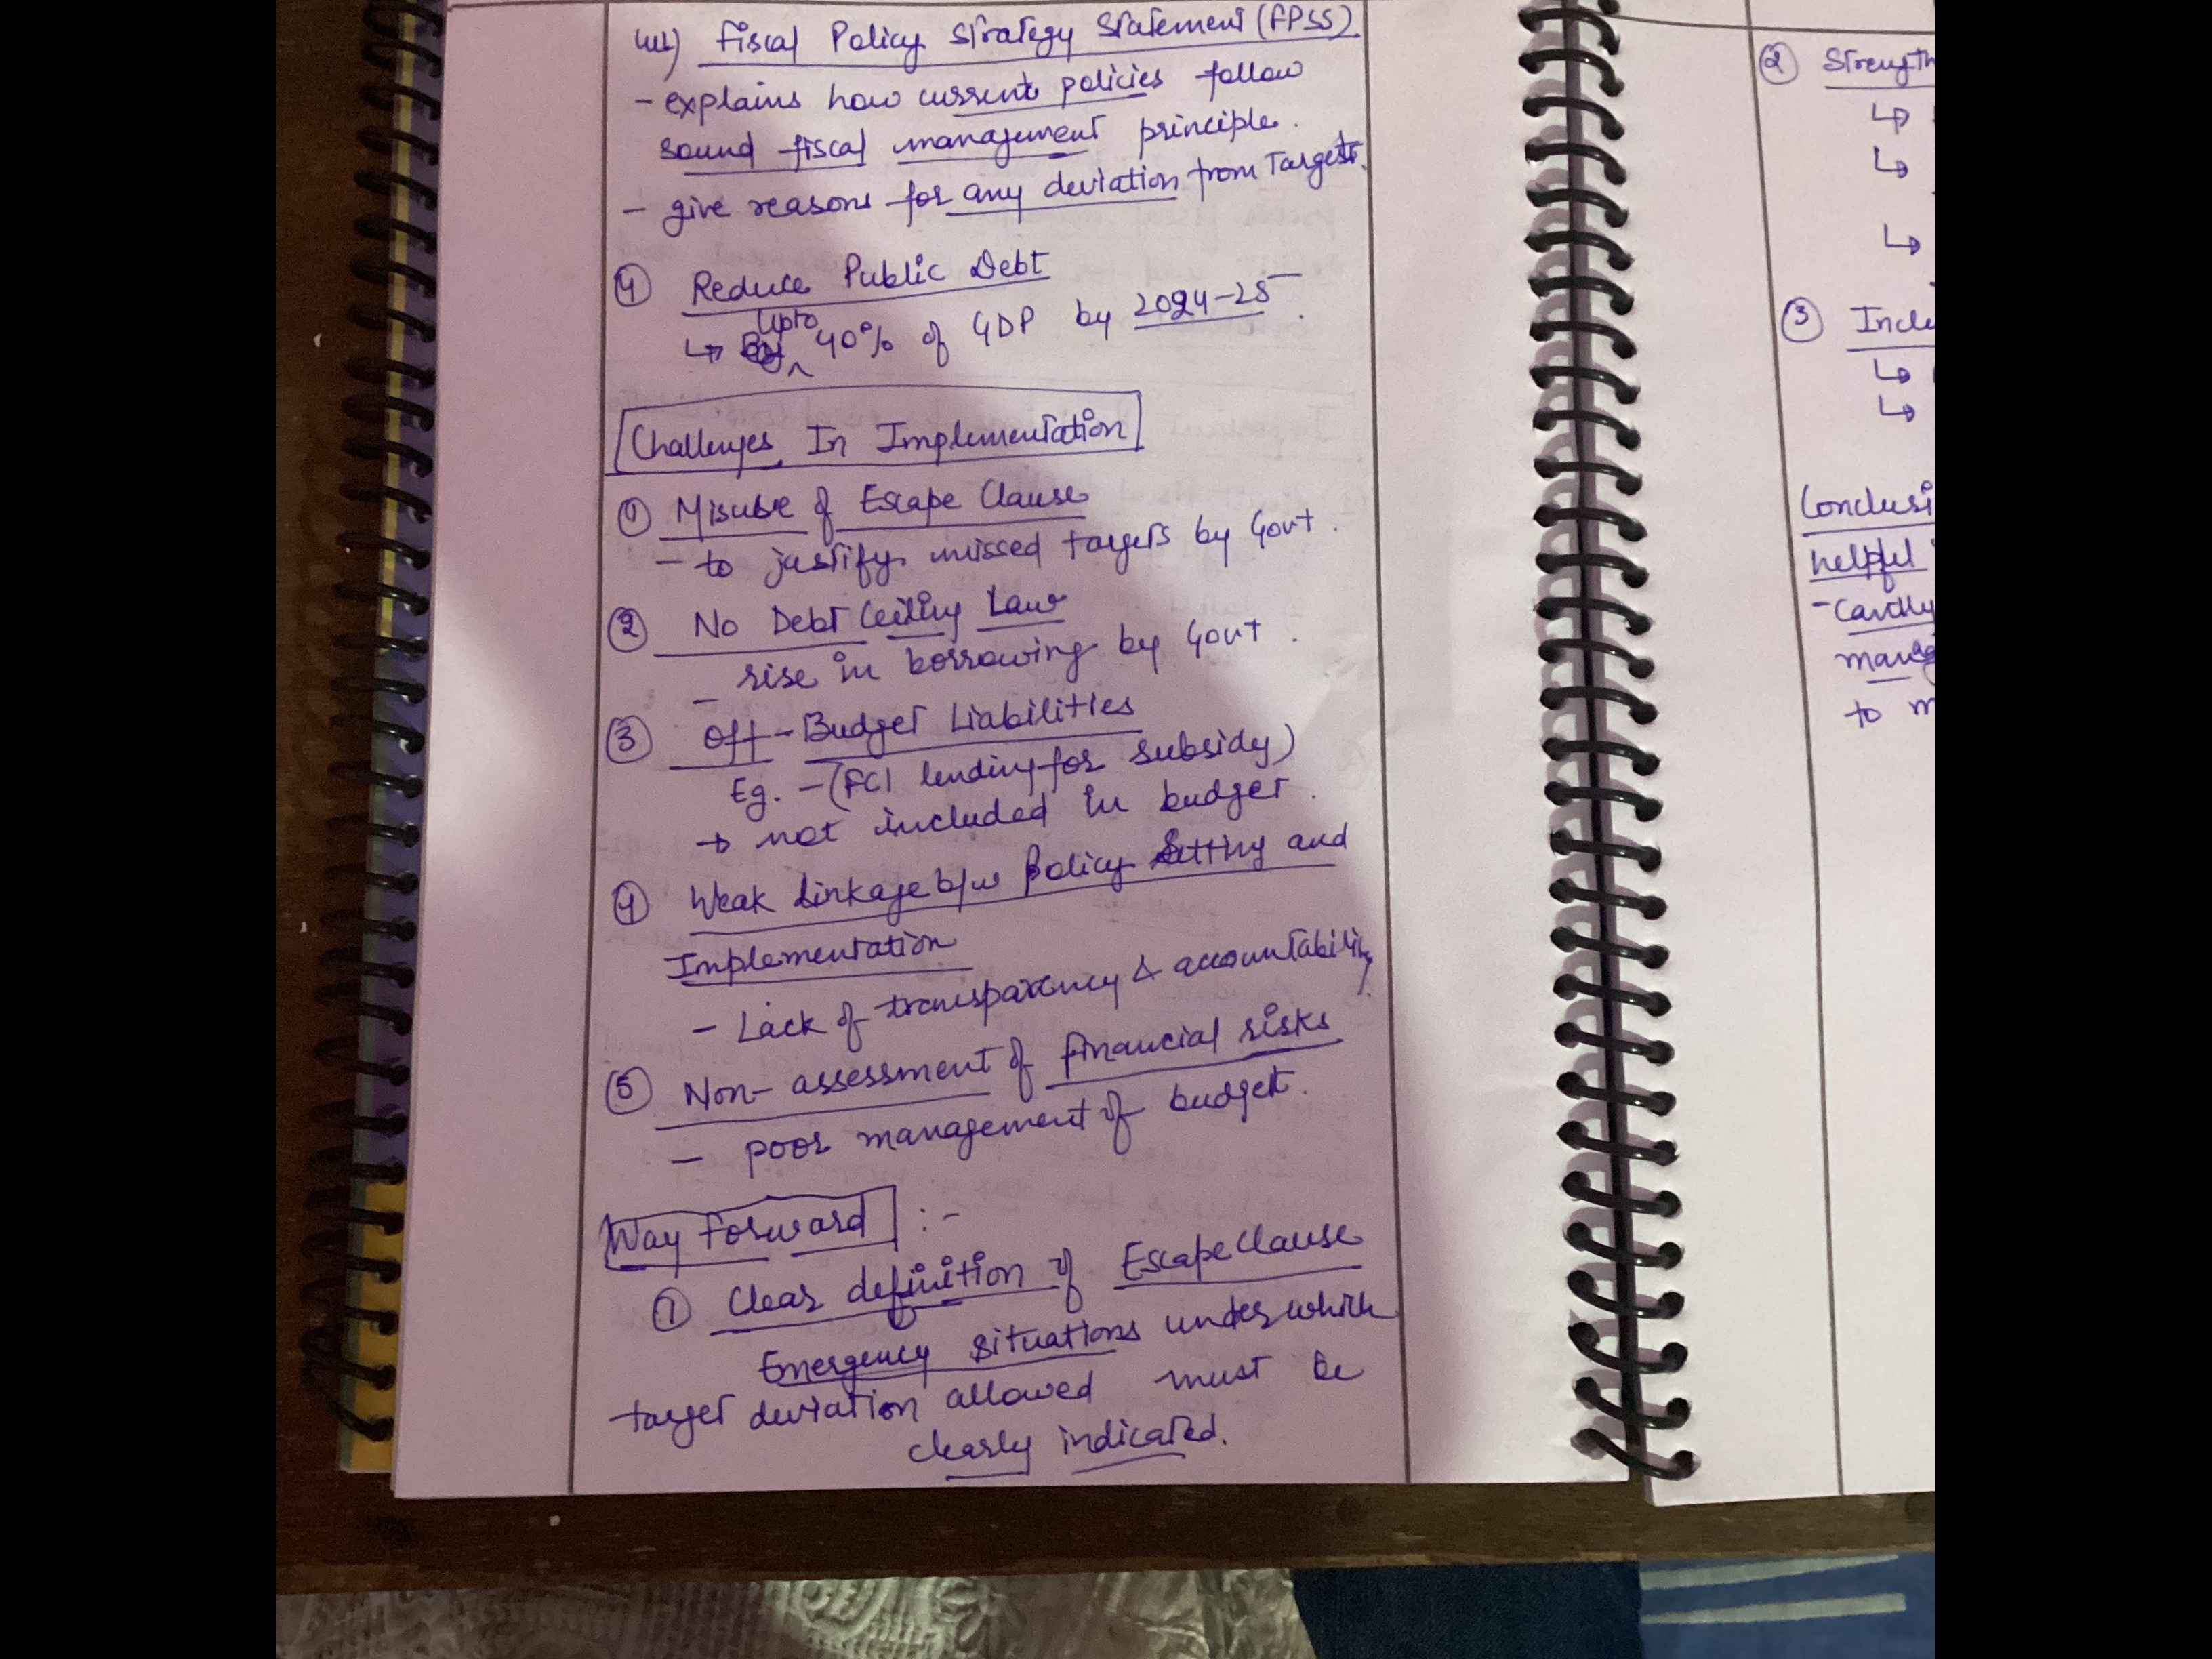 iii) Fiscal Policy Strategy Statement (FPSS)
- explains how current policies follow
sound fiscal management principle.
- give reasons for any deviation from Targets.
④ Reduce Public Debt
Upto
↳ 40% of GDP by 2024-25.
Challenges In Implementation
① Misuse of Escape Clause
- to justify missed targets by Govt.
② No Debt Ceiling Law
- rise in borrowing by Govt.
③ Off-Budget Liabilities
Eg. - (FCI lending for subsidy)
→ not included in budget.
④ Weak Linkage b/w Policy Setting and
Implementation
- Lack of transparency & accountability.
⑤ Non-assessment of financial risks
- poor management of budget.
Way Forward :-
① Clear definition of Escape Clause
Emergency situations under which
target deviation allowed must be
clearly indicated.
② Strength
↳
↳
↳
③ Inclu
↳
↳
Conclusi
helpful
- Cantly
manag
to m